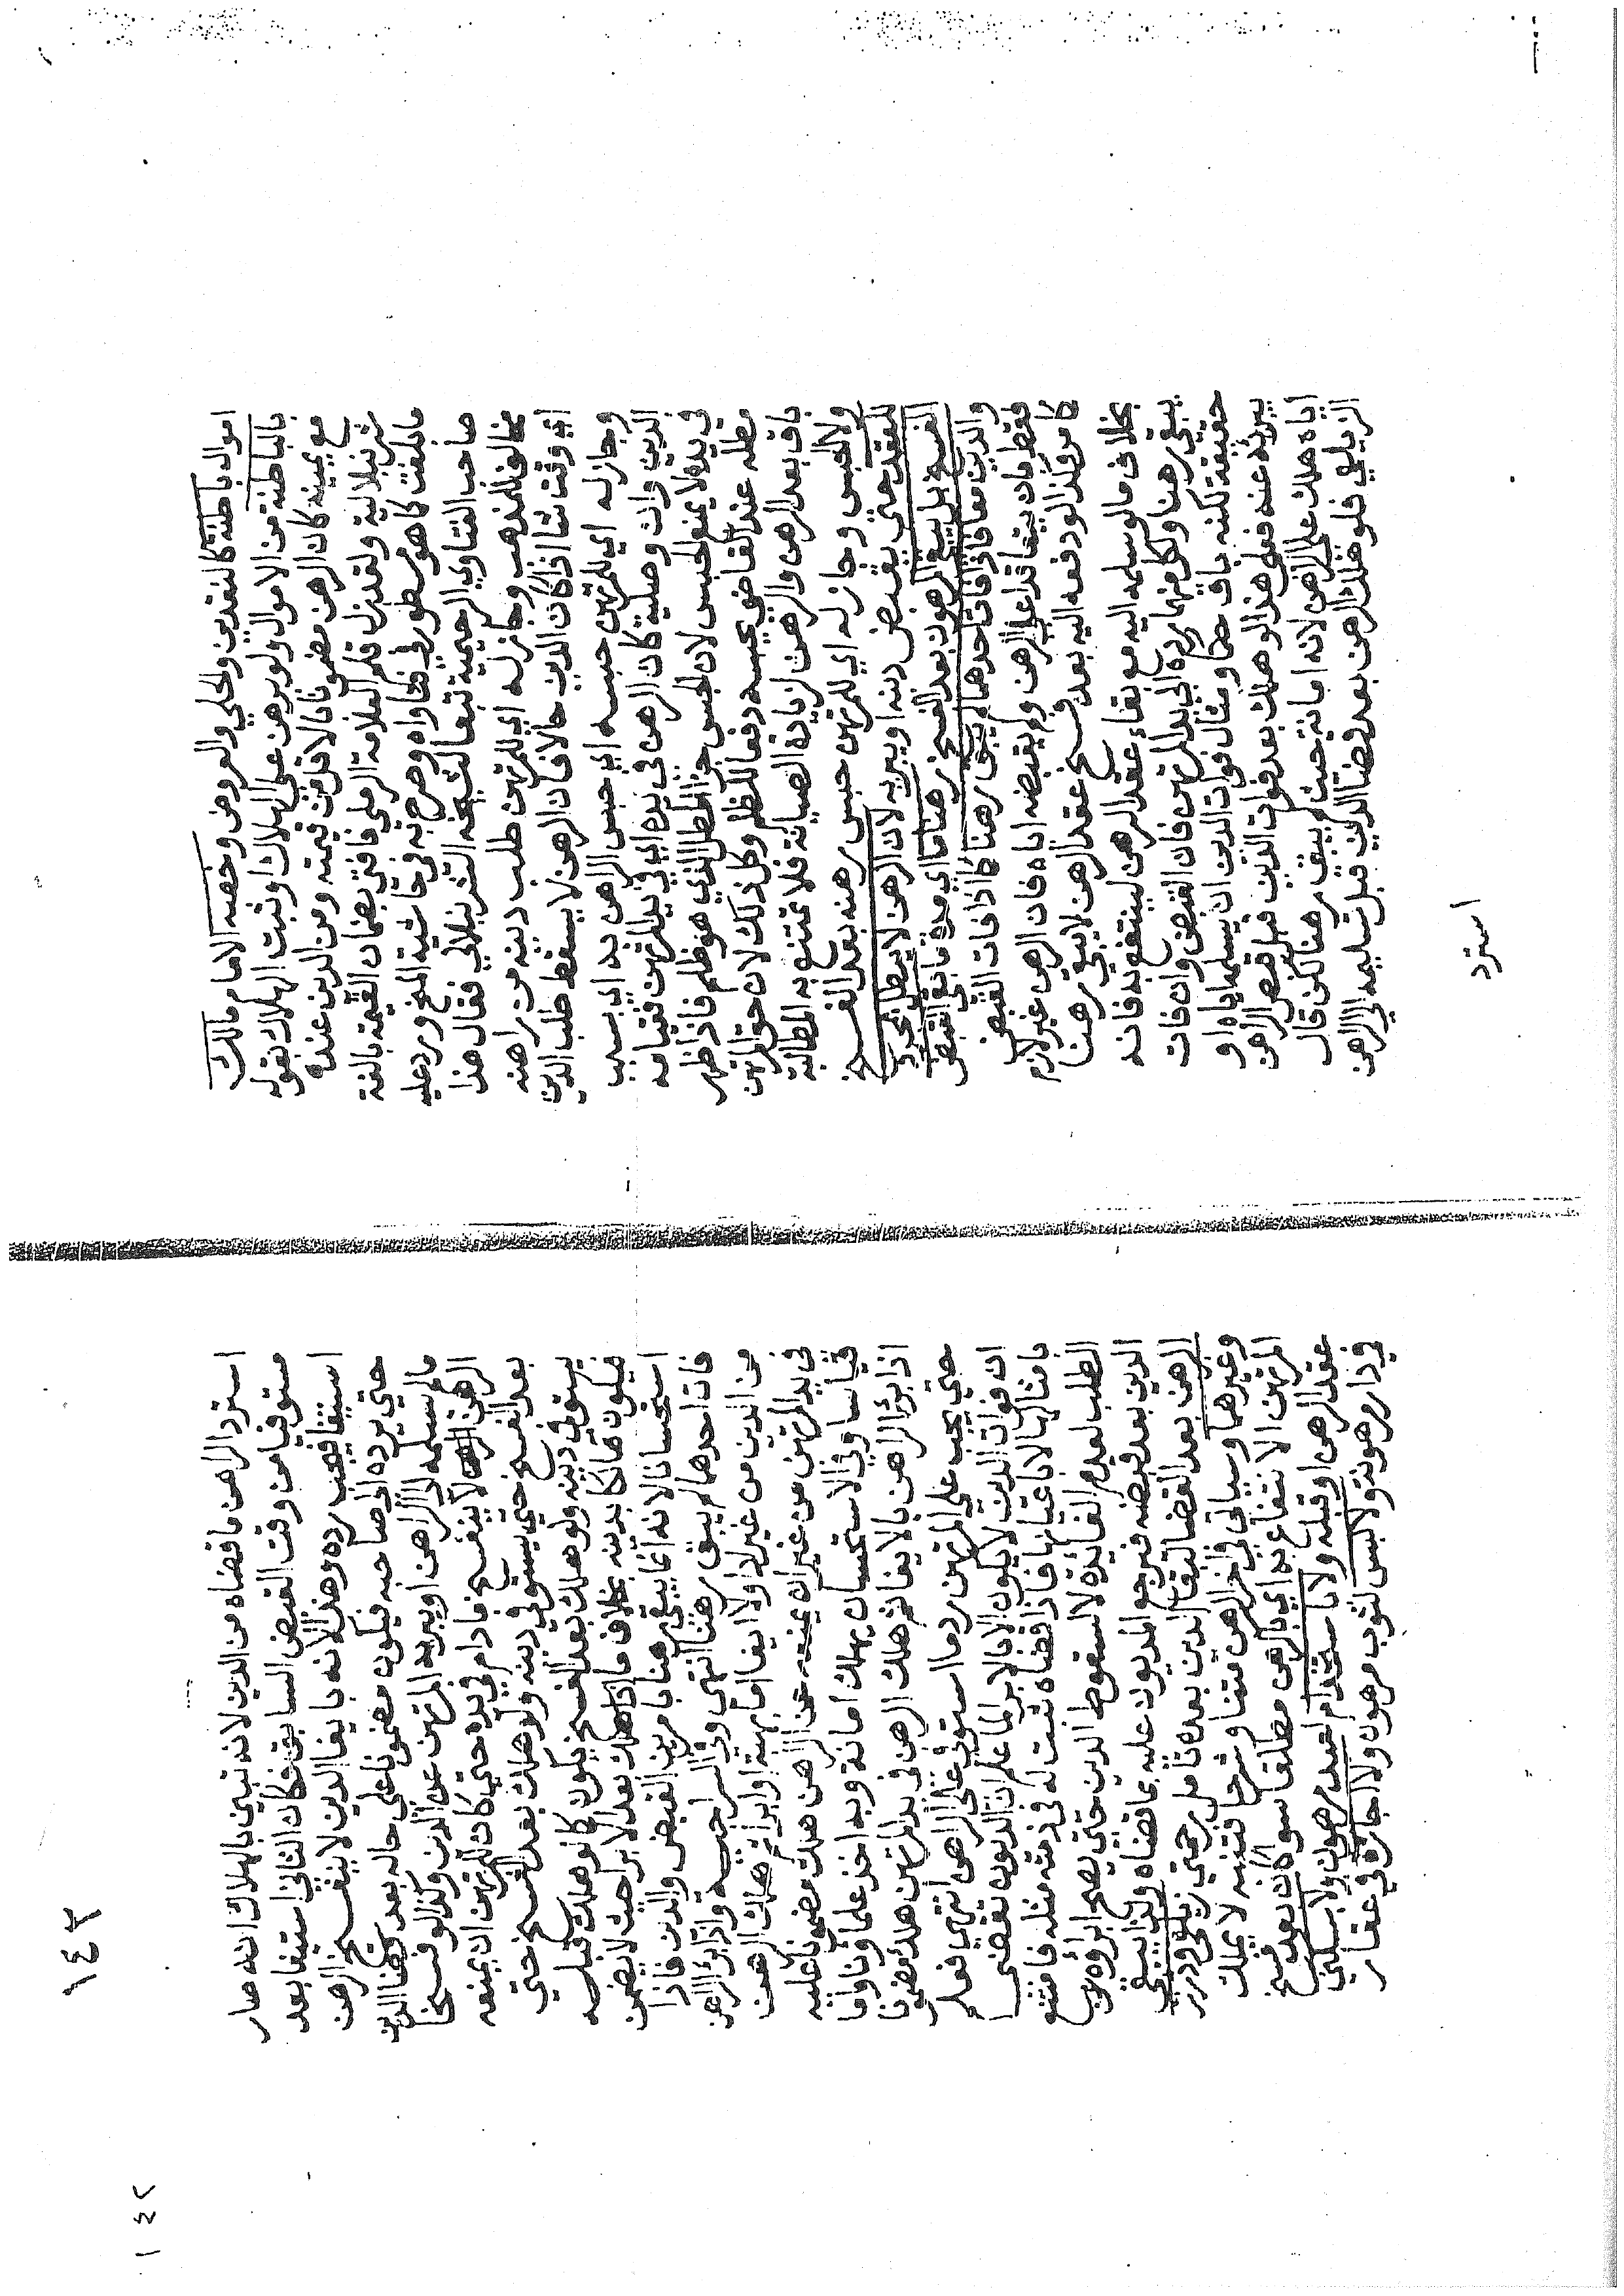 اموال باطنة كالنقدين والحلي والعروض وخصه الامام مالك
بالباطنة من الاموال ولو برهن على الهلاك او ثبت الهلاك بقوله
مع يمينه كان الرهن مضمونا بالاقل من قيمته ومن الدين عنده
شرنبلالية ولقد زل قلم العلامة الرملي فافتى بضمان القيمة بالغة
مابلغت كما هو مسطور في فتاواه وصرح به في حاشية المنح ورد عليه
صاحب الفتاوي الرحيمية تبعا لشيخه الشرنبلالي فقال هذا
مخالف للمذهب وجاز له اي للمرتهن طلب دينه من راهنه
اي وقت شا اذا كان الدين حالا فان الرهن لا يسقط طلب الدين
وجاز له اي للمرتهن حبسه اي حبس الراهن به اي بسبب
الدين وان وصلية كان الرهن في يده اي في يد المرتهن فقيامه
في يده لا يمنع الحبس لان الحبس جزا المطل الذي هو ظلم فاذا ظهر
مطله عند القاضي يحبسه دفعا للظلم وكل ذلك لان حق المرتهن
باق بعد الرهن والرهن لزيادة الصيانة فلا تمتنع به المطالبة
ولا الحبس وجاز له اي للمرتهن حبس رهنه بعد الفسخ
للعقد حتى يقبض دينه او يبريه لان الرهن لا يبطل بمجرد
الفسخ بل يبقى المرهون بعد الفسخ رهنا ما اي مدة ما بقي القبض
والدين معا فاذا فات احدهما لم يبق رهنا كما اذا فات القبض
فقط مان يتعاقدا على الرهن ولم يقبضه اياه فان الرهن غير لازم
كما مر وكذا لو دفعه اليه بعد فسخ عقد الرهن لا يبقى رهنا
بخلاف ما لو سلمه اليه مع بقاء عقد الرهن لينتفع به فانه
يبقى رهنا ولكل منهما رده الى يد المرتهن فان القبض وان فات
حقيقة لكنه باق حكما ومثال فوات الدين ان يسلمه اياه او
يبرئه عنه فعلى هذا لو هلك بعد فوات الدين قبل قبض الراهن
اياه هلك على الراهن لانه امانة حيث لم يبق رهنا لكن قال
الزيلعي فلو هلك الرهن بعد قضا الدين قبل تسليمه الى الراهن
استرد
١٤٢
استرد الراهن ما قضاه من الدين لانه تبين بالهلاك انه صار
مستوفيا من وقت القبض السابق فكان الثاني استيفا بعد
استيفا فيجب رده وهذا لانه بايفا الدين لا ينفسخ الرهن
حتى يرده الى صاحبه فيكون مضمونا على حاله بعد قضا الدين
مالم يسلمه الى الراهن او يبريه المرتهن عن الدين وكذا لو فسخا
الرهن لا ينفسخ مادام في يده حتى كان للمرتهن ان يمنعه
بعد الفسخ حتى يستوفي دينه ولو هلك بعد الفسخ حتى
يستوفي دينه ولو هلك بعد الفسخ يكون كما لو هلك قبله
فيكون هالكا بدينه بخلاف ما اذا هلك بعد الابرا حيث لا يضمن
استحسانا لانه انما يبقى رهنا بامرين القبض والدين فاذا
فات احدهما لم يبق رهنا انتهى وفي السراجية واذا ابرا الراهن
من الدين من غير اداء ولا ايفا اما بهبة او ابرا ثم هلك الرهن
في يد المرتهن من غير ان يمنعه عن الراهن هلك مضمونا عليه
قياسا وفي الاستحسان يهلك امانة وبه اخذ علماؤنا واما
اذا برئ الراهن بالايفا ثم هلك الرهن في يد المرتهن هلك مضمونا
حتى يجب على المرتهن رد ما استوفى على الراهن انتهى فعلم
ان فوات الدين لا يكون الا بالابرا لما علم ان الديون تقضى
بامثالها لا باعيانها فاذا قضاه ثبت له في ذمته مثله فامتنع
الطلب لعدم الفائدة لا لسقوط الدين حتى يصح ابراؤه من
الدين بعد قبضه فيرجع المديون عليه بما قضاه ولذا يبقى
الرهن بعد القضا لبقا الدين بعده تامل رحمتي زيلعي ودرر
وغيرهما وسياتي في اخر الرهن متنا وشرحا فتنبه لا يملك
المرتهن الانتفاع به اي بالرهن مطلقا سوا كان بعد فسخ
عقد الرهن او قبله ولا باستخدام لعبد مرهون ولا سكنى
في دار مرهونة ولا لبس لثوب مرهون ولا اجارة في عقار
١٤٢